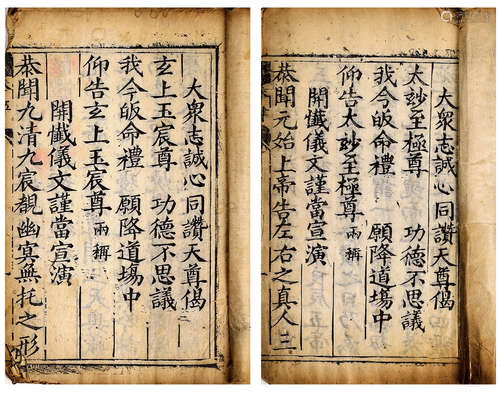 大衆志誠心同讚天尊偈
玄上玉宸尊　功德不思議
我今皈命禮　願降道場中
仰告玄上玉宸尊兩稱
開懺儀文謹當宣演
恭聞九清九宸覩幽寞無托之形
大衆志誠心同讚天尊偈
太玅至極尊　功德不思議
我今皈命禮　願降道場中
仰告太玅至極尊兩稱
開懺儀文謹當宣演
恭聞元始上帝告左右之真人三